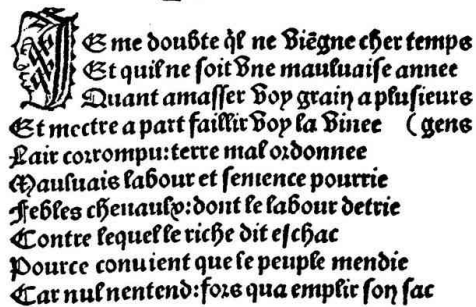 Je me doubte q̃l ne viẽgne cher temps
Et quil ne soit vne mauluaise annee
Quant amasser voy grain a plusieurs
Et mectre a part faillir voy la vinee (gens
Lair corrompu: terre mal ordonnee
Mauluais labour et semence pourrie
Febles cheuaulx: dont le labour detrie
Contre lequel le riche dit eschac
Pource conuient que le peuple mendie
Car nul nentend: fors qua emplir son sac